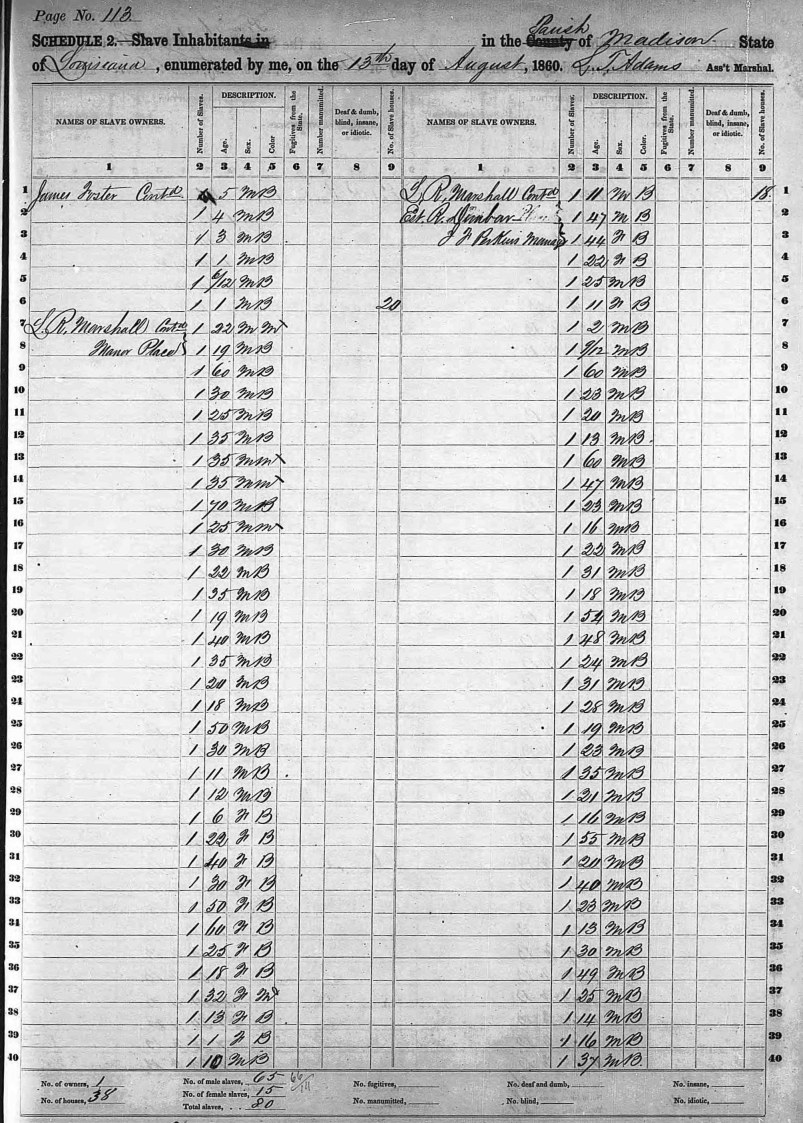 Page No. 113
SCHEDULE 2.—Slave Inhabitants in in the Parish County of Madison State
of Louisiana, enumerated by me, on the 13th day of August, 1860. L. T. Adams Ass't Marshal.
NAMES OF SLAVE OWNERS. Number of Slaves. DESCRIPTION. Age. Sex. Color Fugitives from the State. Number manumitted. Deaf & dumb, blind, insane, or idiotic. No. of Slave houses. NAMES OF SLAVE OWNERS. Number of Slaves. DESCRIPTION. Age. Sex. Color. Fugitives from the State. Number manumitted. Deaf & dumb, blind, insane, or idiotic. No. of Slave houses.
1 2 3 4 5 6 7 8 9 1 2 3 4 5 6 7 8 9
1 James Foster Contd 5 M B L. R. Marshall Contd 1 11 M B 18 1
2 1 4 M B Est. R. Dunbar 1 47 M B 2
3 1 3 M B Perkins Manag 1 44 F B 3
4 1 1 M B 1 22 F B 4
5 1 6/12 M B 1 25 M B 5
6 1 1 M B 20 1 11 F B 6
7 L. R. Marshall Contd 1 22 M M 1 2 M B 7
8 Manor Place 1 19 M B 1 9/12 M B 8
9 1 60 M B 1 60 M B 9
10 1 30 M B 1 23 M B 10
11 1 25 M B 1 20 M B 11
12 1 35 M B 1 13 M B 12
13 1 35 M M 1 60 M B 13
14 1 35 M M 1 47 M B 14
15 1 70 M B 1 23 M B 15
16 1 25 M M 1 16 M B 16
17 1 30 M B 1 22 M B 17
18 1 22 M B 1 31 M B 18
19 1 35 M B 1 18 M B 19
20 1 19 M B 1 54 M B 20
21 1 40 M B 1 48 M B 21
22 1 35 M B 1 24 M B 22
23 1 20 M B 1 31 M B 23
24 1 18 M B 1 28 M B 24
25 1 50 M B 1 19 M B 25
26 1 30 M B 1 23 M B 26
27 1 11 M B 1 35 M B 27
28 1 12 M B 1 21 M B 28
29 1 6 F B 1 16 M B 29
30 1 22 F B 1 55 M B 30
31 1 40 F B 1 20 M B 31
32 1 30 F B 1 40 M B 32
33 1 50 F B 1 23 M B 33
34 1 60 F B 1 13 M B 34
35 1 25 F B 1 30 M B 35
36 1 18 F B 1 49 M B 36
37 1 32 F M 1 25 M B 37
38 1 13 F B 1 14 M B 38
39 1 1 F B 1 16 M B 39
40 1 10 M B 1 37 M B 40
No. of owners, 1 No. of male slaves, 65 No. fugitives, No. of deaf and dumb, No. insane,
No. of houses, 38 No. of female slaves, 15 No. manumitted, No. blind, No. idiotic,
Total slaves, 80